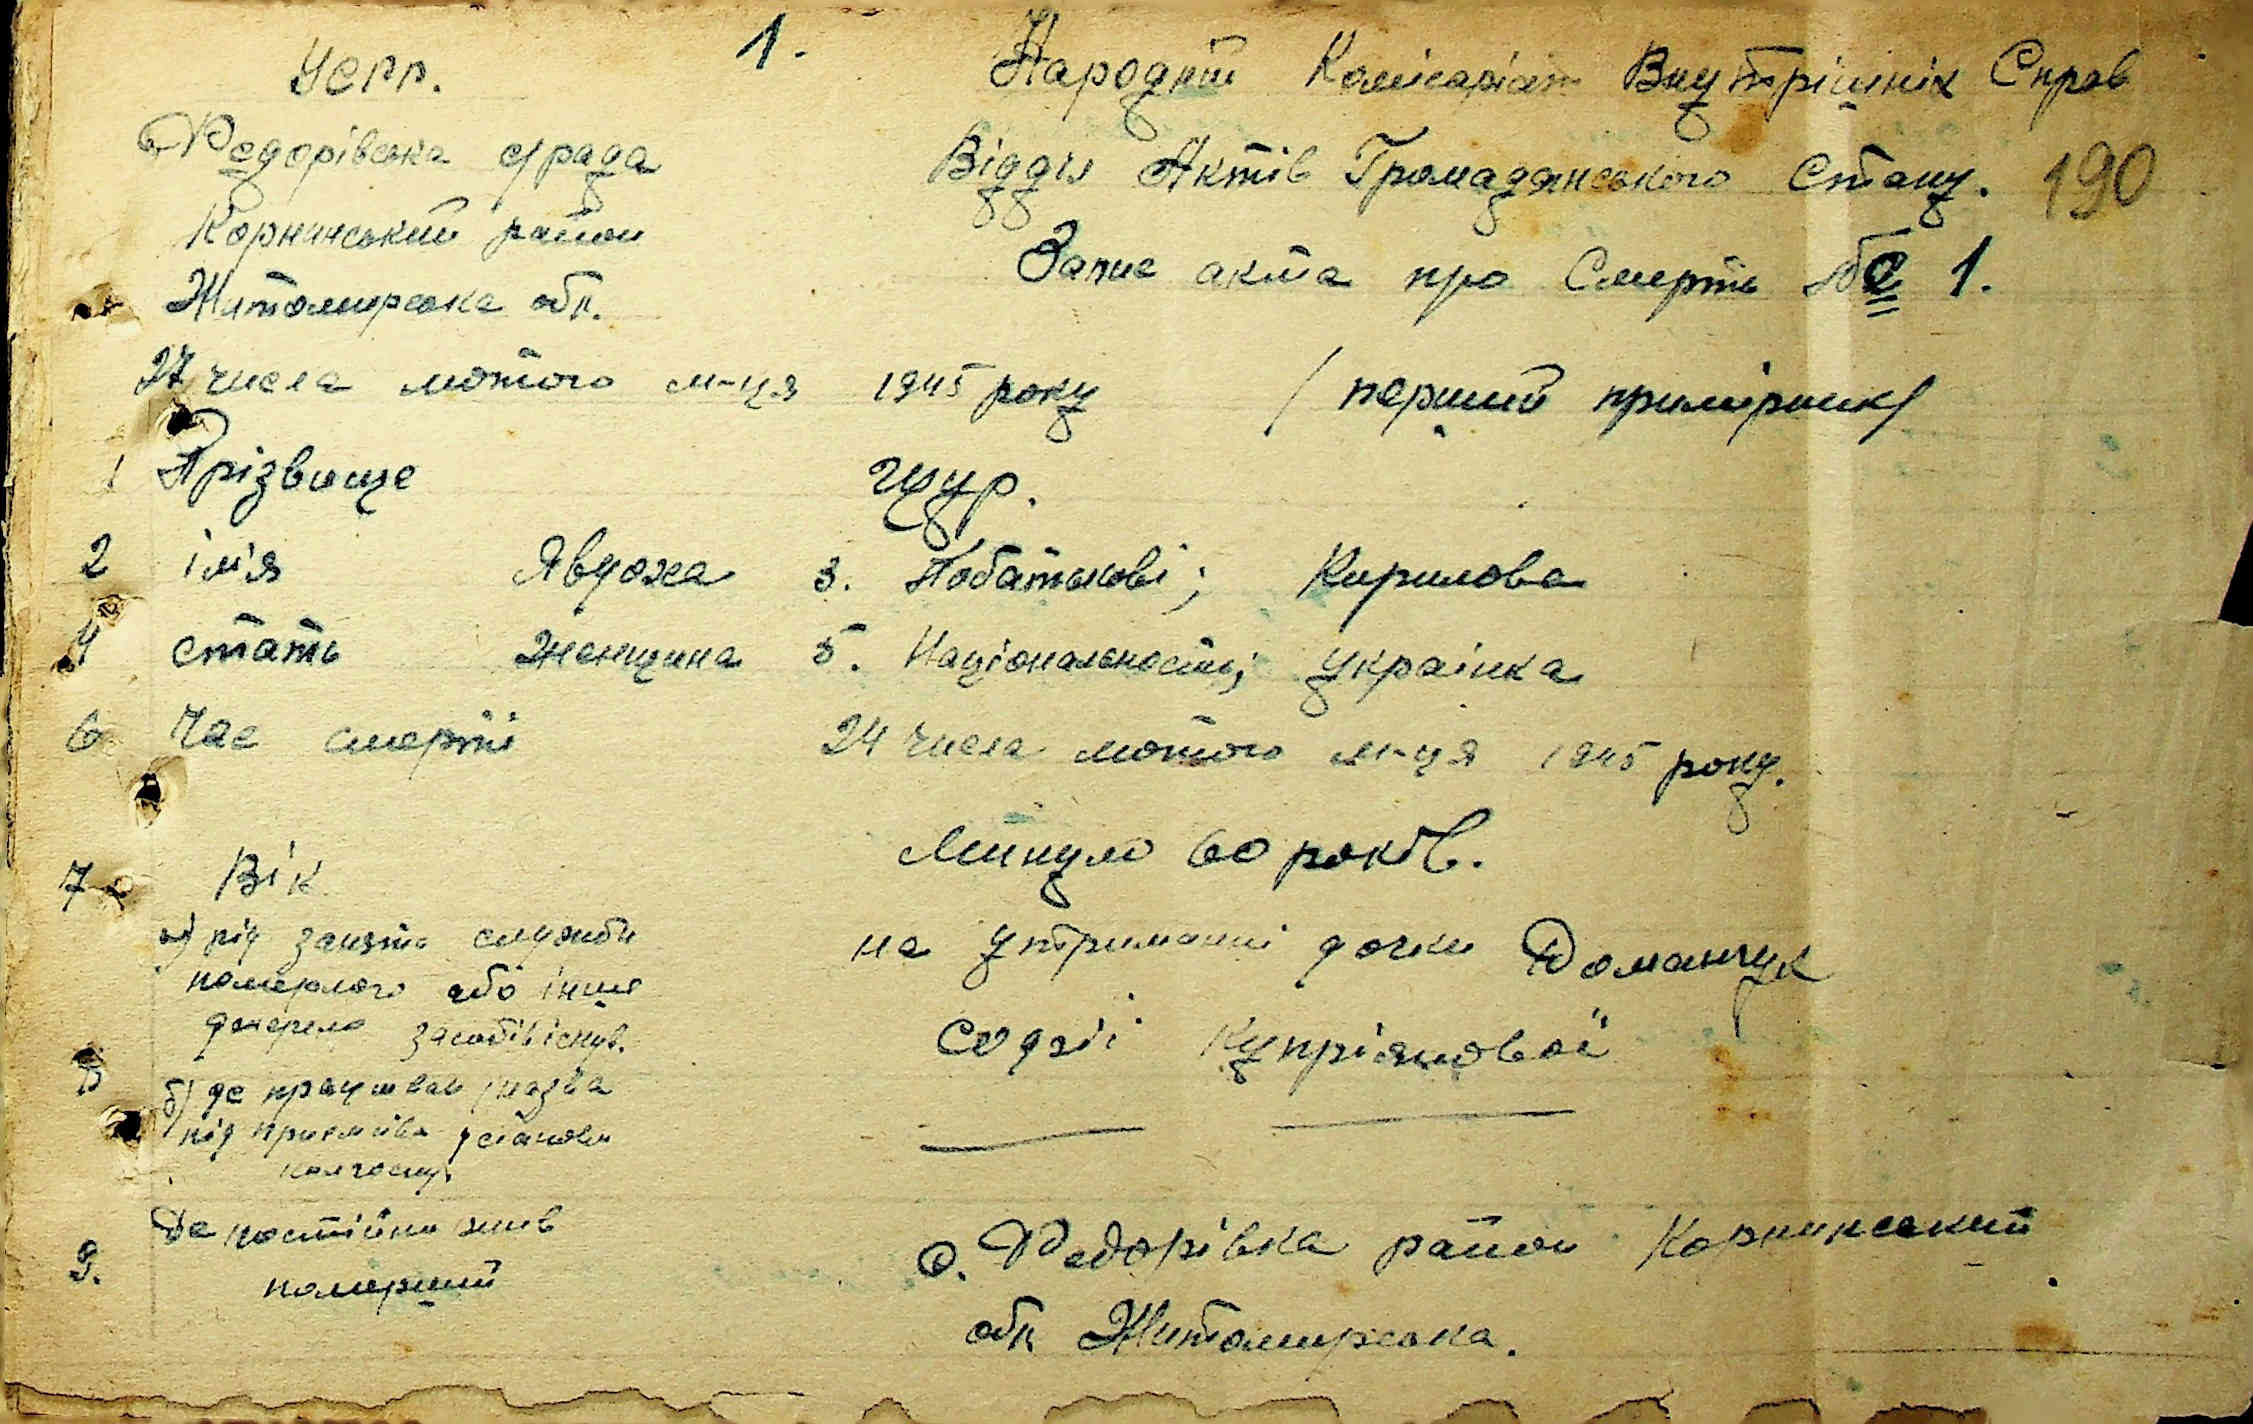 1.
УСРР. Народній Комісаріат Внутрішніх Справ
Федорівська с/рада Відділ Актів Громадянського Стану. 190
Корнинський район
Житомирська обл. Запис акта про Смерть № 1.
27 числа лютого м-ця 1945 року / перший примірник/
1 Прізвище Щур.
2 ім'я Явдоха 3. Побатькові; Кирилова
4 стать Женщина 5. Національность; українка
6 Час смерті 24 числа лютого м-ця 1945 року.
7 Вік Минуло 60 років.
а) рід занять служби на утриманні дочки Доманчук
померлого або інше
джерело засобів існув. Купріянової
8 б) де працював /назва
підприємства установи
колгоспу.
9. Де постійно жив с. Федорівка район Корнинський
померший обл Житомирська.